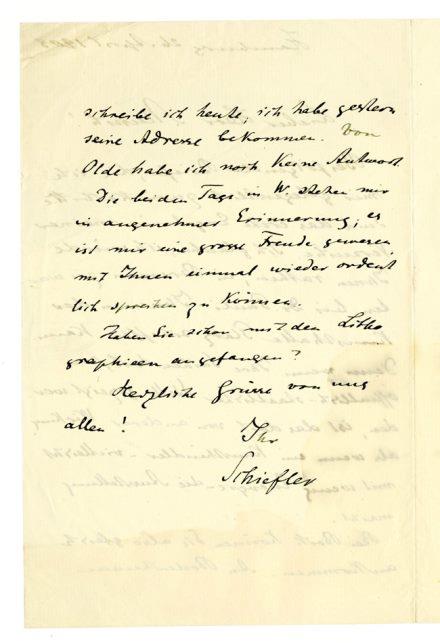 schreibe ich heute, ich habe gestern
seine Adresse bekommen. Von
Olde habe ich noch keine Antwort.
Die beiden Tage in W. stehen mir
in angenehmer Erinnerung, es
ist mir eine grosse Freude gewesen
mit Ihnen einmal wieder ordent
lich sprechen zu können.
Haben Sie schon mit den Litho
graphieen angefangen?
Herzliche Grüsse von uns
allen!
Ihr
Schiefler